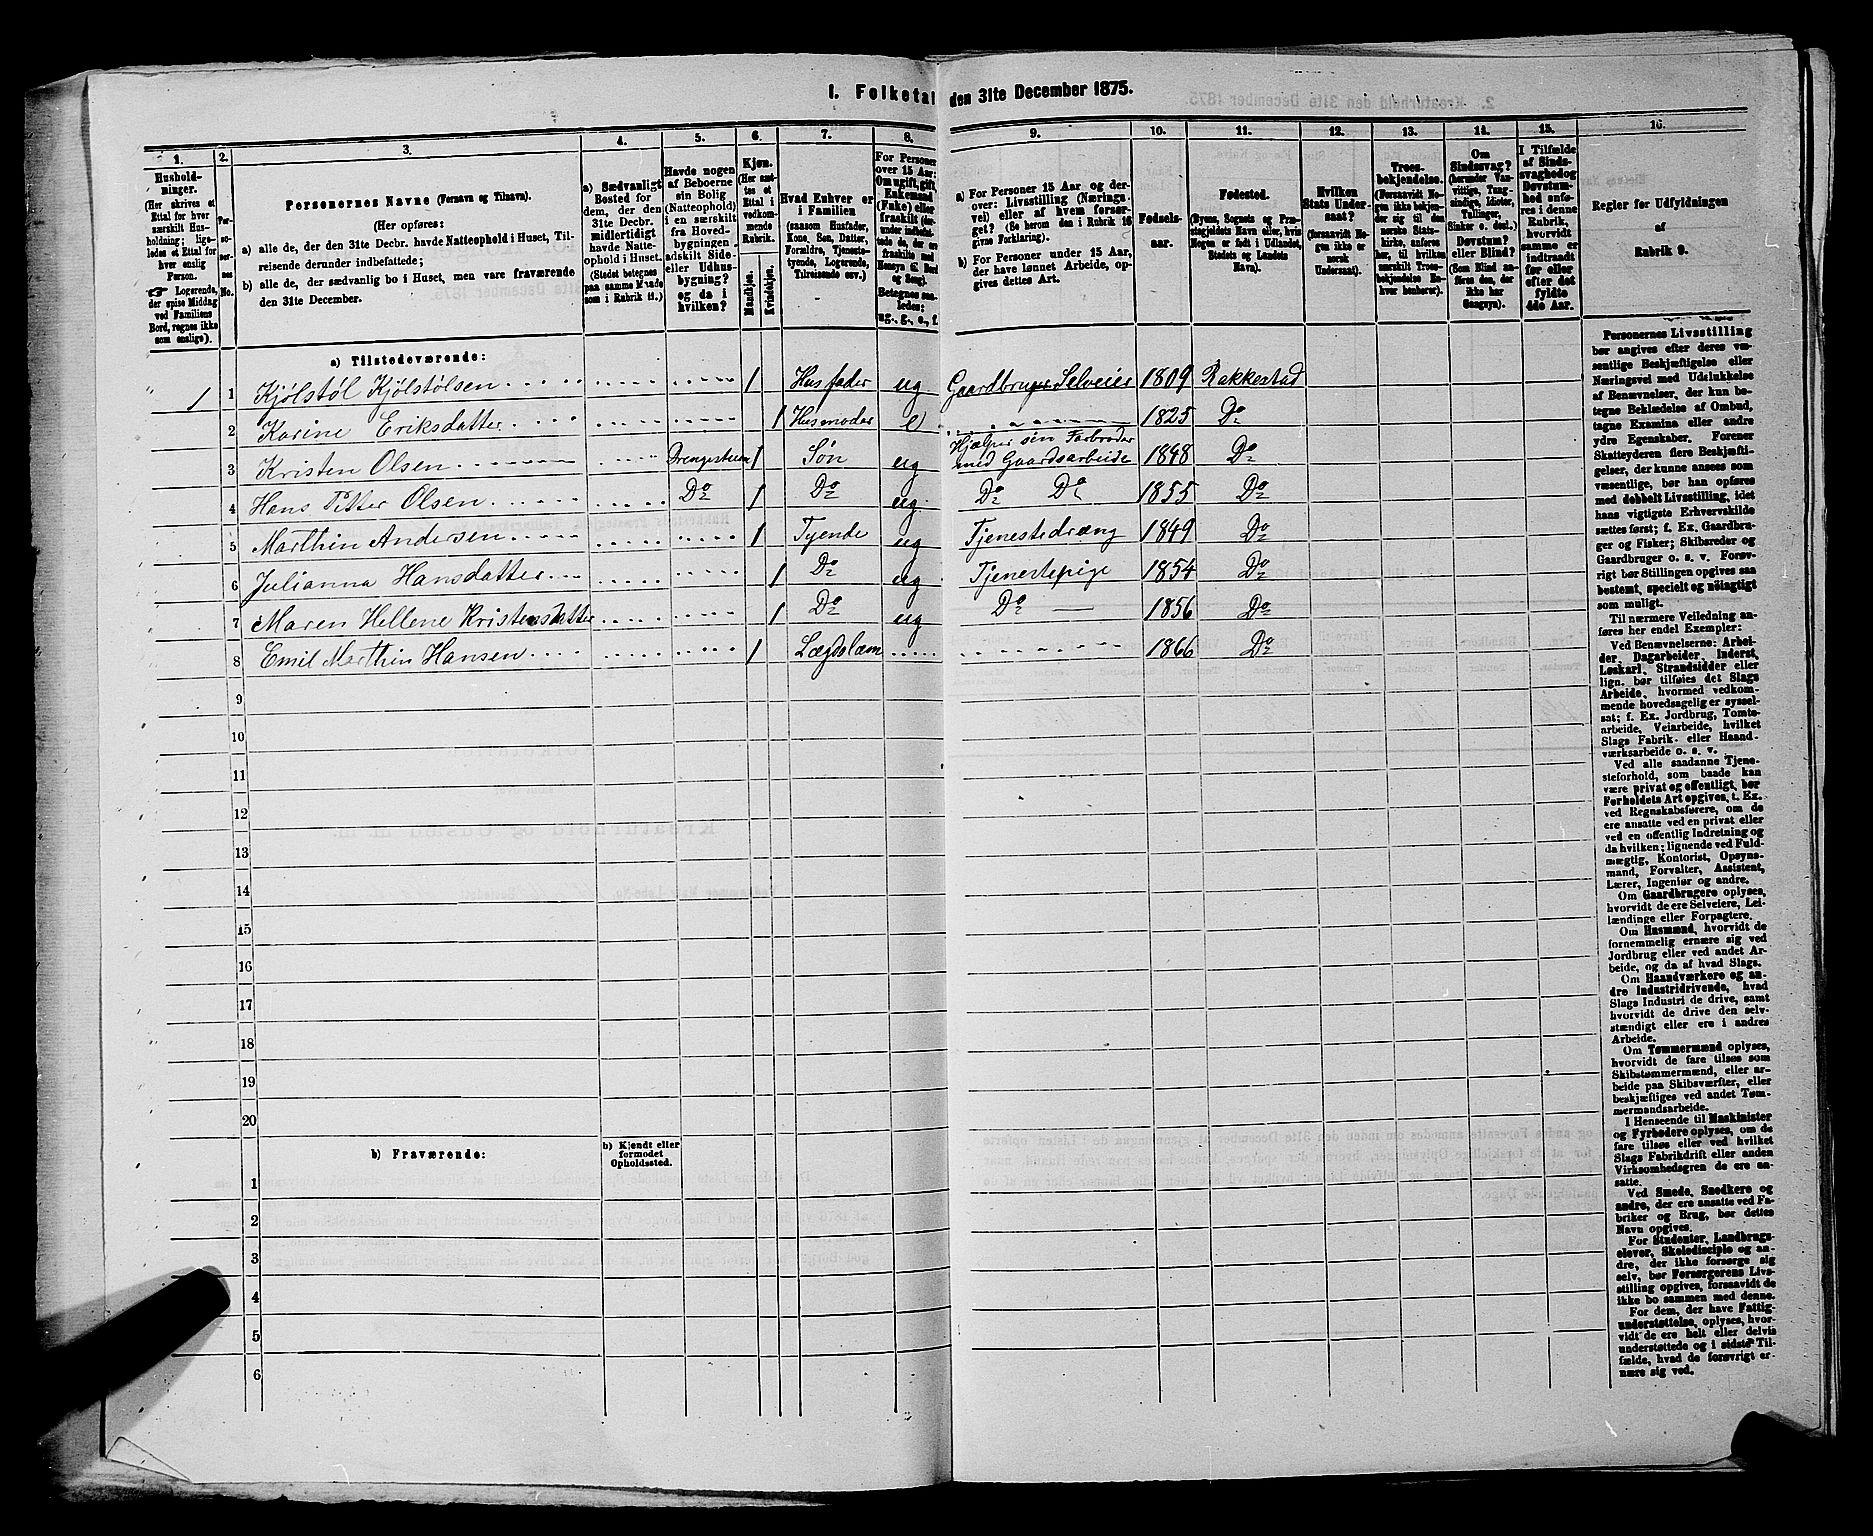 1. Folketal den 31te December 1875.
1. 2. 3. 4. 5. 6. 7. 8. 9. 10. 11. 12. 13. 14. 15. 16.
Hushold-
ninger.
(Her skrives et
Ettal for hver
særskilt Hus-
holdning; lige-
ledes et Ettal
for hver enslig
Person.
☞ Logerende,
der spise Middag
ved Familiens
Bord, regnes ikke
som enslige).
Per-
so-
ner-
nes
No.
Personernes Navne (Fornavn og Tilnavn).
(Her opføres:
a) alle de, der den 31te Decbr. havde Natteophold i Huset, Til-
reisende derunder indbefattede;
b) alle de, der sædvanlig bo i Huset, men vare fraværende
den 31te December.
a) Sædvanligt
Bosted for
dem, der den
31te Decbr.
midlertidigt
havde Natte-
ophold i Huset.
(Stedet betegnes
paa samme Maade
som i Rubrik 11.)
Havde nogen
af Beboerne
sin Bolig
(Natteophold)
i en særskilt
fra Hoved-
bygningen
adskilt Side-
eller Udhus-
bygning?
og da i
hvilken?
Kjøn.
(Her sæt-
tes et
Ettal i
vedkom-
mende
Rubrik.
Mandkjøn.
Kvindekjøn.
Hvad Enhver er
i Familien
(saasom Husfader,
Kone, Søn, Datter,
Forældre, Tjeneste-
tyende, Logerende,
Tilreisende osv.)
For Personer
over 15 Aar:
Om ugift, gift,
Enkemand
(Enke) eller
fraskilt (der-
under indbefat-
tede de, der ere
fraskilte med
Hensyn til Bord
og Seng).
Betegnes saa-
ledes:
ug., g., e., f.
a) For Personer 15 Aar og der-
over: Livsstilling (Nærings-
vei) eller af hvem forsør-
get? (Se herom den i Rubrik 16
givne Forklaring).
b) For Personer under 15 Aar,
der have lønnet Arbeide, op-
gives dettes Art.
Fødsels-
aar.
Fødested.
(Byens, Sognets og Præ-
stegjeldets Navn eller, hvis
Nogen er født i Udlandet,
Stedets og Landets
Navn).
Hvilken
Stats Under-
saat?
(forsaavidt No-
gen ikke er
norsk
Undersaat).
Troes-
bekjendelse.
(Forsaavidt No-
gen ikke bekjen-
der sig til den
norske Stats-
kirke, anføres
her, til hvilken
særskilt Troes-
bekjendelse En-
hver henhører).
Om
Sindssvag?
(herunder Van-
vittige, Tung-
sindige, Idioter,
Tullinger,
Sinker o. desl.)
Døvstum?
eller Blind?
(Som Blind an-
føres den, der
ikke har
Gangsyn).
I Tilfælde
af Sinds-
svaghed og
Døvstum-
hed anfø-
res i denne
Rubrik,
hvorvidt
samme er
indtraadt
før eller
efter det
fyldte
4de Aar.
Regler for Udfyldningen
af
Rubrik 9.
a) Tilstedeværende:
1 1 Kjølstøl Kjølstølsen 1 Husfader ug Gaardbruger Selveier 1809 Rakkestad
2 Karine Eriksdatter 1 Husmoder e 1825 Do
3 Kristen Olsen Drengestuen 1 Søn ug Hjælper sin Farbroder med Gaardsarbeide 1848 Do
4 Hans Petter Olsen Do 1 Do ug Do Do 1855 Do
5 Marthin Andersen 1 Tyende ug Tjenestedræng 1849 Do
6 Julianna Hansdatter 1 Do ug Tjenestepige 1854 Do
7 Maren Hellene Kristensdatter 1 Do ug Do 1856 Do
8 Emil Marthin Hansen 1 Lægdslem 1866 Do
9
10
11
12
13
14
15
16
17
18
19
20
b) Fraværende:
b) Kjendt eller
formodet
Opholdssted.
1
2
3
4
5
6
Personernes Livsstilling
bør angives efter deres væ-
sentlige Beskjæftigelse eller
Næringsvei med Udelukkelse
af Benævnelser, der kun be-
tegne Beklædelse af Ombud,
tagne Examina eller andre
ydre Egenskaber. Forener
Skatteyderen flere Beskjæfti-
gelser, der kunne ansees som
væsentlige, bør han opføres
med dobbelt Livsstilling, idet
hans vigtigste Erhvervskilde
sættes først; f. Ex. Gaardbru-
ger og Fisker; Skibsreder og
Gaardbruger o. s. v. Forøv-
rigt bør Stillingen opgives saa
bestemt, specielt og nøiagtigt
som muligt.
Til nærmere Veiledning an-
føres her endel Exempler:
Ved Benævnelserne: Arbei-
der, Dagarbeider, Inderst,
Løskarl, Strandsidder eller
lign. bør tilføies det Slags
Arbeide, hvormed vedkom-
mende hovedsagelig er syssel-
sat; f. Ex. Jordbrug, Tomte-
arbeide, Veiarbeide, hvilket
Slags Fabrik- eller Haand-
værksarbeide o. s. v.
Ved alle saadanne Tjene-
steforhold, som baade kan
være privat og offentligt, bør
Forholdets Art opgives, t. Ex.
ved Regnskabsførere, om de
ere ansatte ved en privat eller
ved en offentlig Indretning og
da hvilken; lignende ved Fuld-
mægtig, Kontorist, Opsyns-
mand, Forvalter, Assistent,
Lærer, Ingeniør og andre.
Om Gaardbrugere oplyses,
hvorvidt de ere Selveiere, Lei-
lændinge eller Forpagtere.
Om Husmænd, hvorvidt de
fornemmelig ernære sig ved
Jordbrug eller ved andet Ar-
beide, og da af hvad Slags.
Om Haandværkere og an-
dre Industridrivende, hvad
Slags Industri de drive, samt
hvorvidt de drive den selv-
stændigt eller ere i andres
Arbeide.
Om Tømmermænd oplyses,
hvorvidt de fare tilsøs som
Skibstømmermænd, eller ar-
beide paa Skibsværfter, eller
beskjæftiges ved andet Tøm-
mermandsarbeide.
I Henseende til Maskinister
og Fyrbødere oplyses, om de
fare tilsøs eller ved hvilket
Slags Fabrikdrift eller anden
Virksomhedsgren de ere an-
satte.
Ved Smede, Snedkere og
andre, der ere ansatte ved Fa-
briker og Brug, bør dettes
Navn opgives.
For Studenter, Landbrugs-
elever, Skoledisciple og an-
dre, der ikke forsørge sig
selv, bør Forsørgerens Livs-
stilling opgives, forsaavidt de
ikke bo sammen med denne.
For dem, der have Fattig-
understøttelse, oplyses, hvor-
vidt de ere helt eller delvis
understøttede og i sidste Til-
fælde, hvad de forøvrigt er-
nære sig ved.